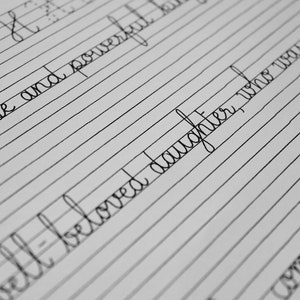 and powerful
well-beloved daughter, who was